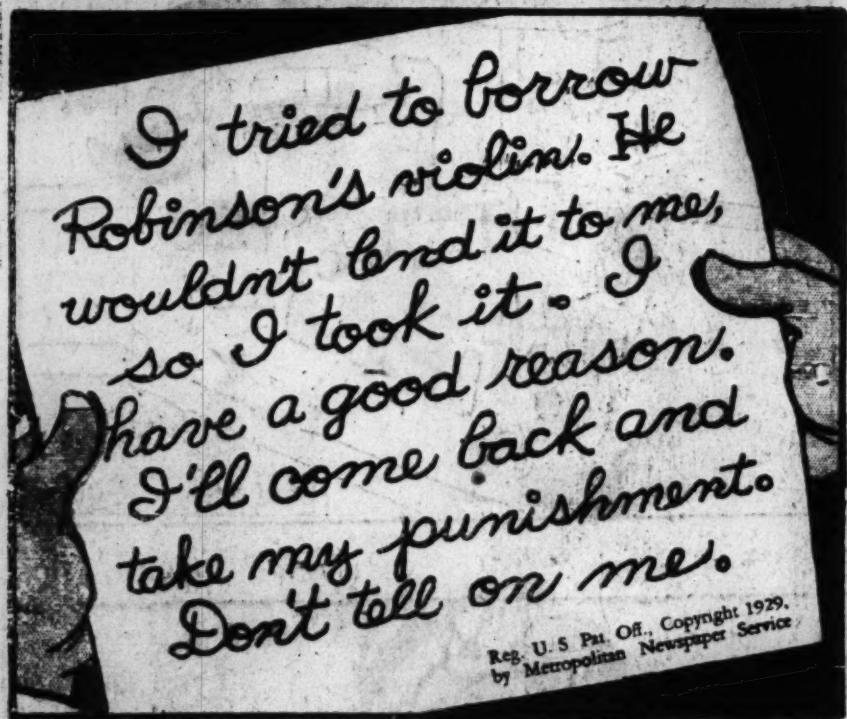 I tried to borrow
Robinson's violin. He
wouldn't lend it to me,
so I took it. I
have a good reason.
I'll come back and
take my punishment.
Don't tell on me.
Reg. U. S. Pat. Off., Copyright 1929,
by Metropolitan Newspaper Service